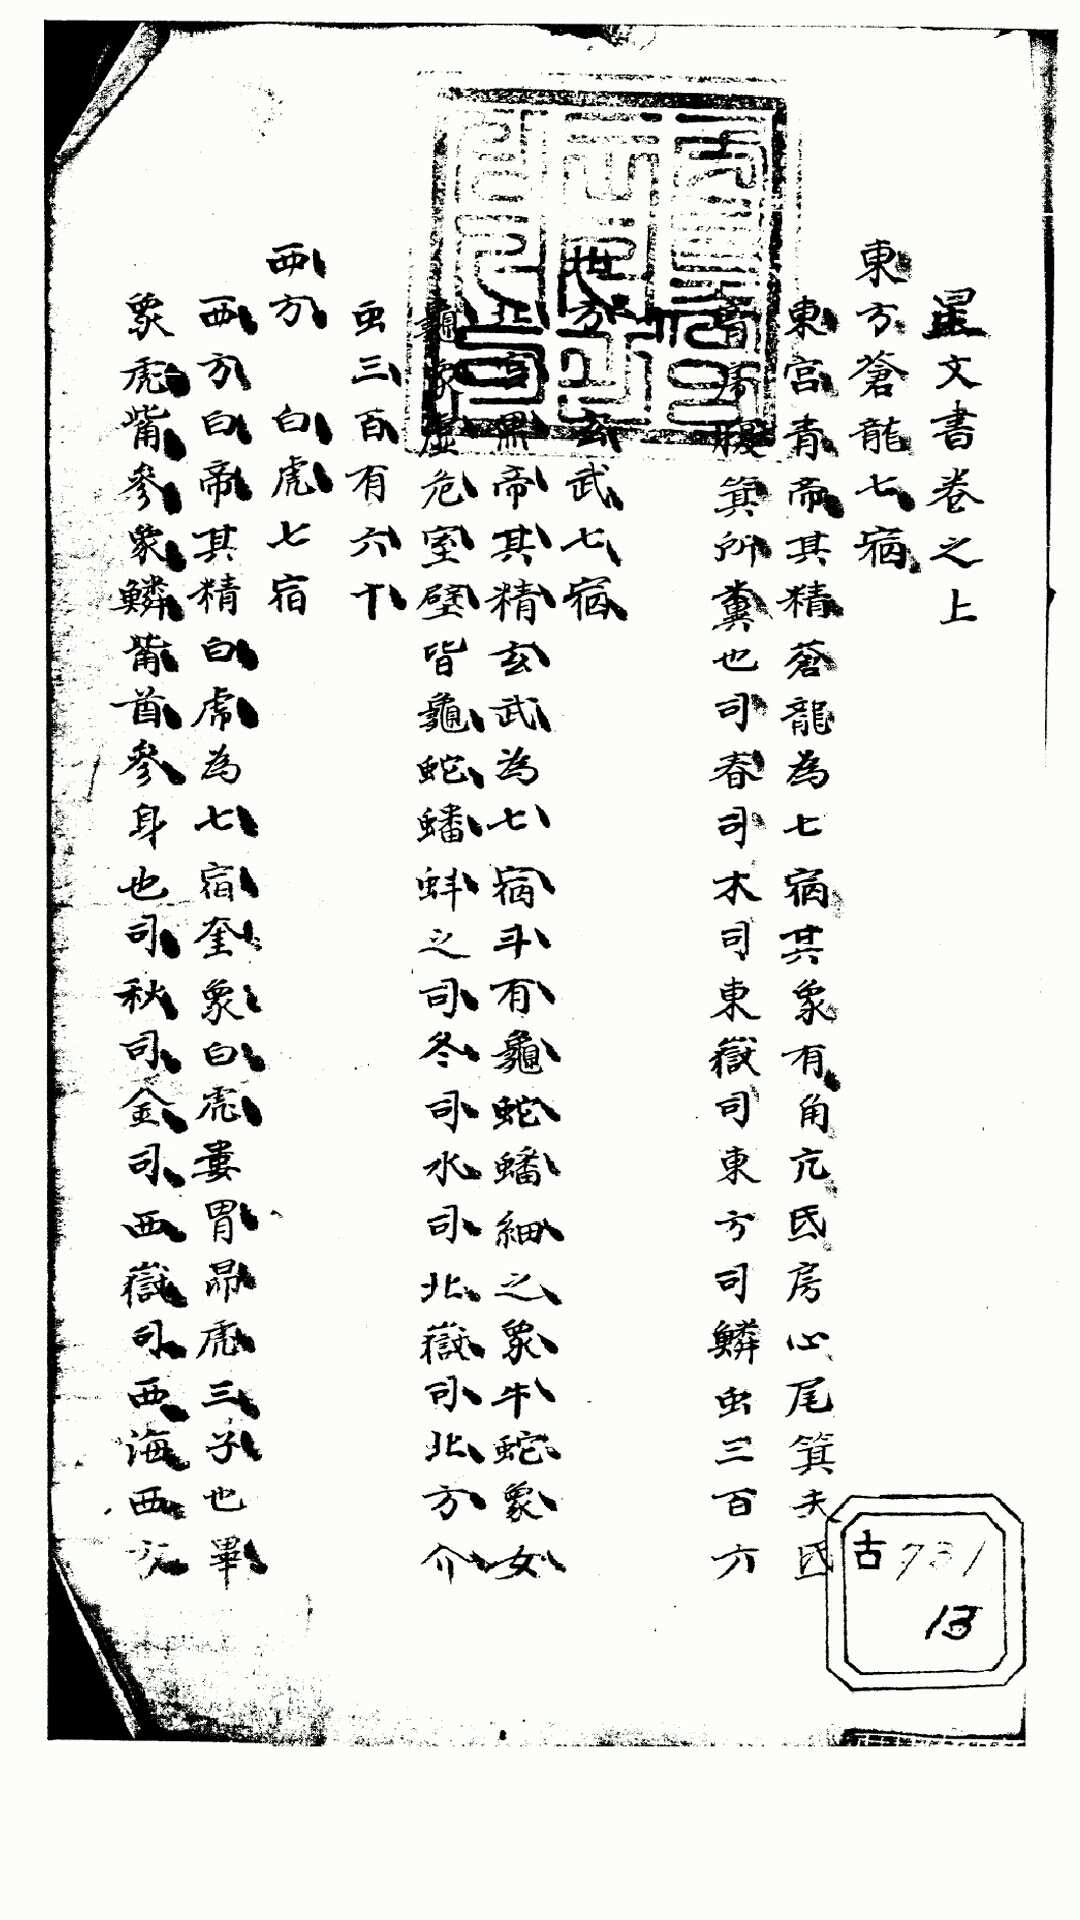 星文書卷之上
東方蒼龍七宿
東宮青帝其精蒼龍為七宿其象有角亢氐房心尾箕夫氐
胷房腹箕所糞也司春司木司東嶽司東方司鱗虫三百六
北方玄武七宿
北宮黑帝其精玄武為七宿斗有龜蛇蟠細之象牛蛇象女
龜象虛危室壁皆龜蛇蟠蚌之司冬司水司北嶽司北方介
虫三百有六十
西方 白虎七宿
西方白帝其精白虎為七宿奎象白虎婁胃昴虎三子也畢
象虎觜參象鱗觜首參身也司秋司金司西嶽司西海西方
古 731
13